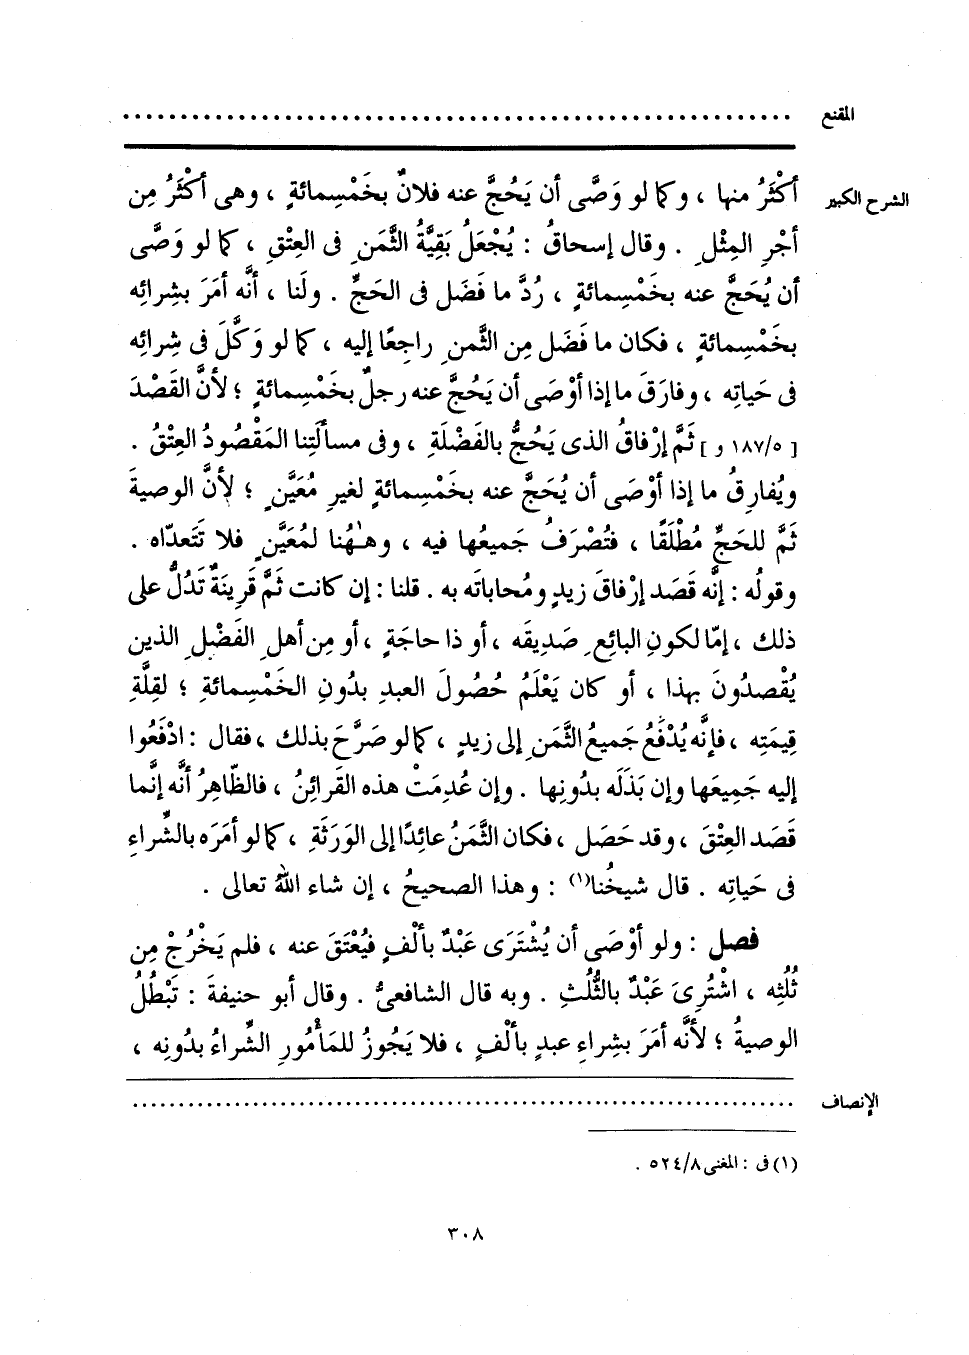 المقنع ..........................................................
الشرح الكبير أكْثَرُ منها ، وكما لو وَصَّى أن يَحُجَّ عنه فلانٌ بخَمْسِمائةٍ ، وهى أكْثَرُ مِن
أجْرِ المِثْلِ . وقال إسحاقُ : يُجْعَلُ بَقِيَّةُ الثَّمَنِ فى العِتْقِ ، كما لو وَصَّى
أن يُحَجَّ عنه بخَمْسِمائةٍ ، رُدَّ ما فَضَل فى الحَجِّ . ولَنا ، أنَّه أمَرَ بشِرائِه
بخَمْسِمائةٍ ، فكان ما فَضَل مِن الثَّمنِ راجِعًا إليه ، كما لو وَكَّلَ فى شِرائِه
فى حَياتِه ، وفارَقَ ما إذا أوْصَى أن يَحُجَّ عنه رجلٌ بخَمْسِمائةٍ ؛ لأنَّ القَصْدَ
[ ١٨٧/٥ و ] ثَمَّ إرْفاقُ الذى يَحُجُّ بالفَضْلَةِ ، وفى مسألَتِنا المَقْصُودُ العِتْقُ .
ويُفارِقُ ما إذا أوْصَى أن يُحَجَّ عنه بخَمْسِمائةٍ لغيرِ مُعَيَّنٍ ؛ لأنَّ الوصيةَ
ثَمَّ للحَجِّ مُطْلَقًا ، فتُصْرَفُ جَميعُها فيه ، وهٰهُنا لمُعَيَّنٍ فلا تَتَعدّاه .
وقولُه : إنَّه قَصَد إرْفاقَ زيدٍ ومُحاباتَه به . قلنا : إن كانت ثَمَّ قَرِينَةٌ تَدُلُّ على
ذلك ، إمّا لكونِ البائعِ صَدِيقَه ، أو ذا حاجَةٍ ، أو مِن أهلِ الفَضْلِ الذين
يُقْصدُونَ بهذا ، أو كان يَعْلَمُ حُصُولَ العبدِ بدُونِ الخَمْسِمائةِ ؛ لقِلَّةِ
قِيمَتِه ، فإنَّه يُدْفَعُ جَميعُ الثَّمَنِ إلى زيدٍ ، كما لو صَرَّحَ بذلك ، فقال : ادْفَعُوا
إليه جَمِيعَها وإن بَذَلَه بدُونِها . وإن عُدِمَتْ هذه القَرائِنُ ، فالظّاهِرُ أنَّه إنَّما
قَصَد العِتْقَ ، وقد حَصَل ، فكان الثَّمَنُ عائِدًا إلى الوَرَثَةِ ، كما لو أمَرَه بالشِّراءِ
فى حَياتِه . قال شيخُنا(١) : وهذا الصحيحُ ، إن شاء اللهُ تعالى .
فصل : ولو أوْصَى أن يُشْتَرَى عَبْدٌ بألْفٍ فيُعْتَقَ عنه ، فلم يَخْرُجْ مِن
ثُلُثِه ، اشْتُرِىَ عَبْدٌ بالثُّلُثِ . وبه قال الشافعىُّ . وقال أبو حنيفةَ : تَبْطُلُ
الوصيةُ ؛ لأنَّه أمَرَ بشِراءِ عبدٍ بألْفٍ ، فلا يَجُوزُ للمَأْمُورِ الشِّراءُ بدُونِه ،
الإنصاف ..........................................................
(١) فى : المغنى ٥٢٤/٨ .
٣٠٨